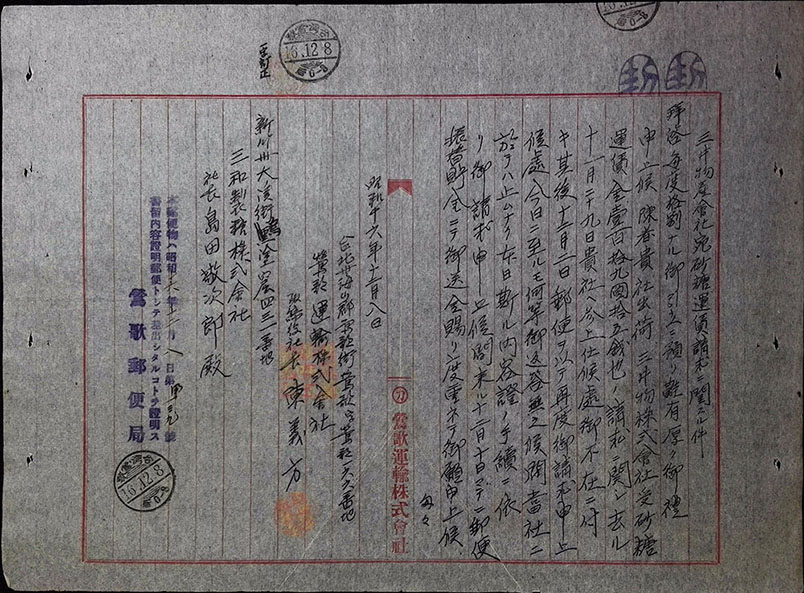 三井物産会社宛砂糖運賃請求ニ関スル件
拝啓毎度格別ナル御引立ニ預リ難有厚ク御禮
申上候 陳者貴社出荷三井物株式會社宛砂糖
運賃金壹百拾九圓拾五銭也ノ請求ニ関シ去ル
十一月二十九日貴社ヘ参上仕候處御不在ニ付
キ其後十二月二日郵便ヲ以テ再度御請求申上
候處今日ニ至ルモ何等御返答無之候間當社ニ
於テハ止ムナク本日斯ル内容證ノ手續ニ依
リ御請求申上候間来ル十二月十日マデニ郵便
振替貯金ニテ御送金賜リ度重ネテ御願申上候
昭和十六年十二月八日
台北州海山郡鶯歌街鶯歌字鶯歌 番地
鶯歌運輸株式會社
取締役社長 陳義方
新竹州大溪街 四三一番地
三和製 株式會社
社長 島田 次郎 殿
本郵便物ハ昭和 年十二月八日第 號
書留内容證明郵便トシテ差出シタルコトヲ證明ス
鶯歌郵便局
鶯歌運輸株式會社
16.12.8
16.12.8